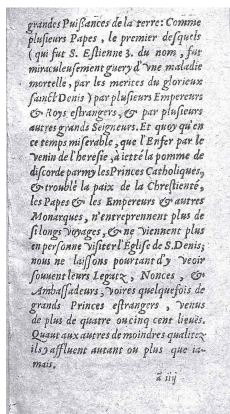 grandes Puissances de la terre: Comme
plusieurs Papes, le premier desquels
(qui fut S. Estienne 3. du nom, fut
miraculeusement guery d'vne maladie
mortelle, par les merites du glorieux
sainct Denis) par plusieurs Empereurs
& Roys estrangers, & par plusieurs
autres grands Seigneurs. Et quoy qu'en
ce temps miserable, que l'Enfer par le
venin de l'heresie, à ietté la pomme de
discorde parmy les Princes Catholiques,
& troublé la paix de la Chrestienté,
les Papes & les Empereurs & autres
Monarques, n'entreprennent plus de
si longs voyages, & ne viennent plus
en personne visiter l'Eglise de S. Denis;
nous ne laissons pourtant d'y veoir
souuent leurs Legatz, Nonces, &
Ambassadeurs, voires quelquefois de
grands Princes estrangers, venus
de plus de quatre ou cinq cent lieuës.
Quant aux autres de moindres qualitez
ils y affluent autant ou plus que ia-
mais.
ã iiij